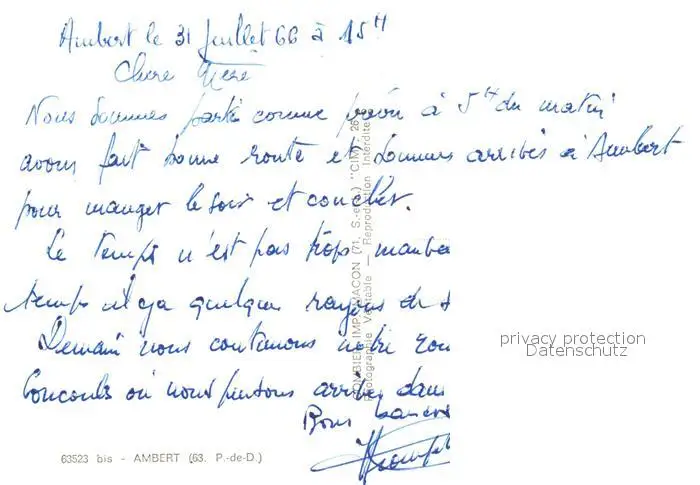 Ambert le 31 Juillet 66 à 15H
Chere Mère
Nous sommes parti comme prévu à 5H du matin
avons fait bonne route et sommes arrivés à Ambert
pour manger le soir et coucher.
Le temps n'est pas trop mauva
temps il y a quelques rayons de s
Demain nous continuons notre rou
où nous pensons arriver dans
Bons baisers
63523 bis - AMBERT (63. P.-de-D.)
COMBIER IMP. MACON (71, S.-et-L.) "CIM" 26
Photographie Véritable — Reproduction Interdite
privacy protection
Datenschutz